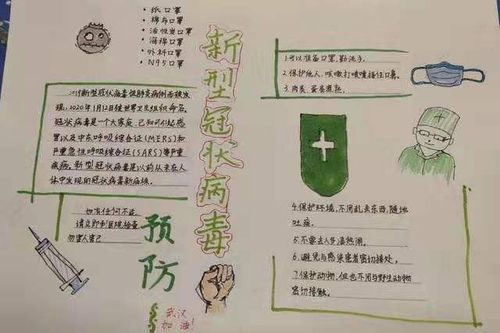 • 纸口罩
• 棉布口罩
• 活性炭口罩
• 海绵口罩
• 外科口罩
• N95口罩
新型冠状病毒
2019新型冠状病毒
现，2020年1月12日被世界卫生组织命名。
冠状病毒是一个大家庭，已知可引起感
冒以及中东呼吸综合征(MERS)和
严重急性呼吸综合征(SARS)等严重
疾病。新型冠状病毒是以前从未在人
体中发现的冠状病毒新病株。
如有任何不适，
请立即到医院检查，
勿害人害己
预防
武汉
加油！
1.可以准备口罩，勤洗手。
2.保护他人，咳嗽打喷嚏捂住口鼻。
3.肉类、蛋类煮熟。
4.保护环境，不用乱丢东西，随地
吐痰。
5.不要去人多温热潮。
6.避免与感染患者密切接处。
7.保护动物，但也不用与野生动物
密切接触。